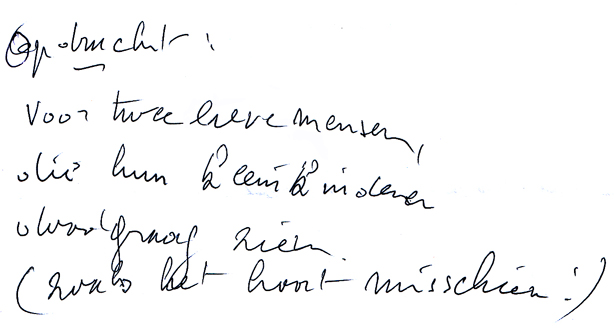 Opdracht:
Voor twee lieve mensen,
die hun kleinkinderen
doodgraag zien.
(zoals het hoort misschien!)